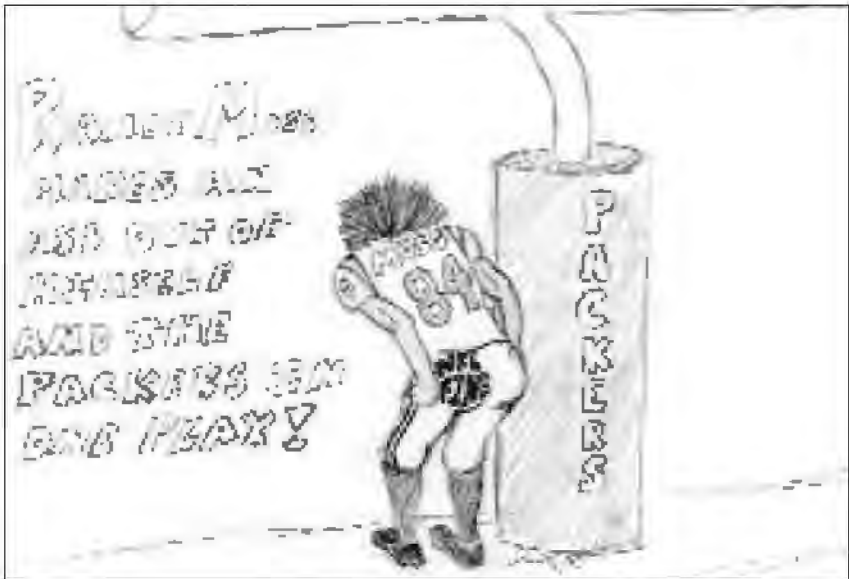 Randy Moss
MAKES AN
ASS OUT OF
HIMSELF
AND THE
PACKERS IN
ONE PLAY!
MOSS
84
NFL
FINE
PACKERS